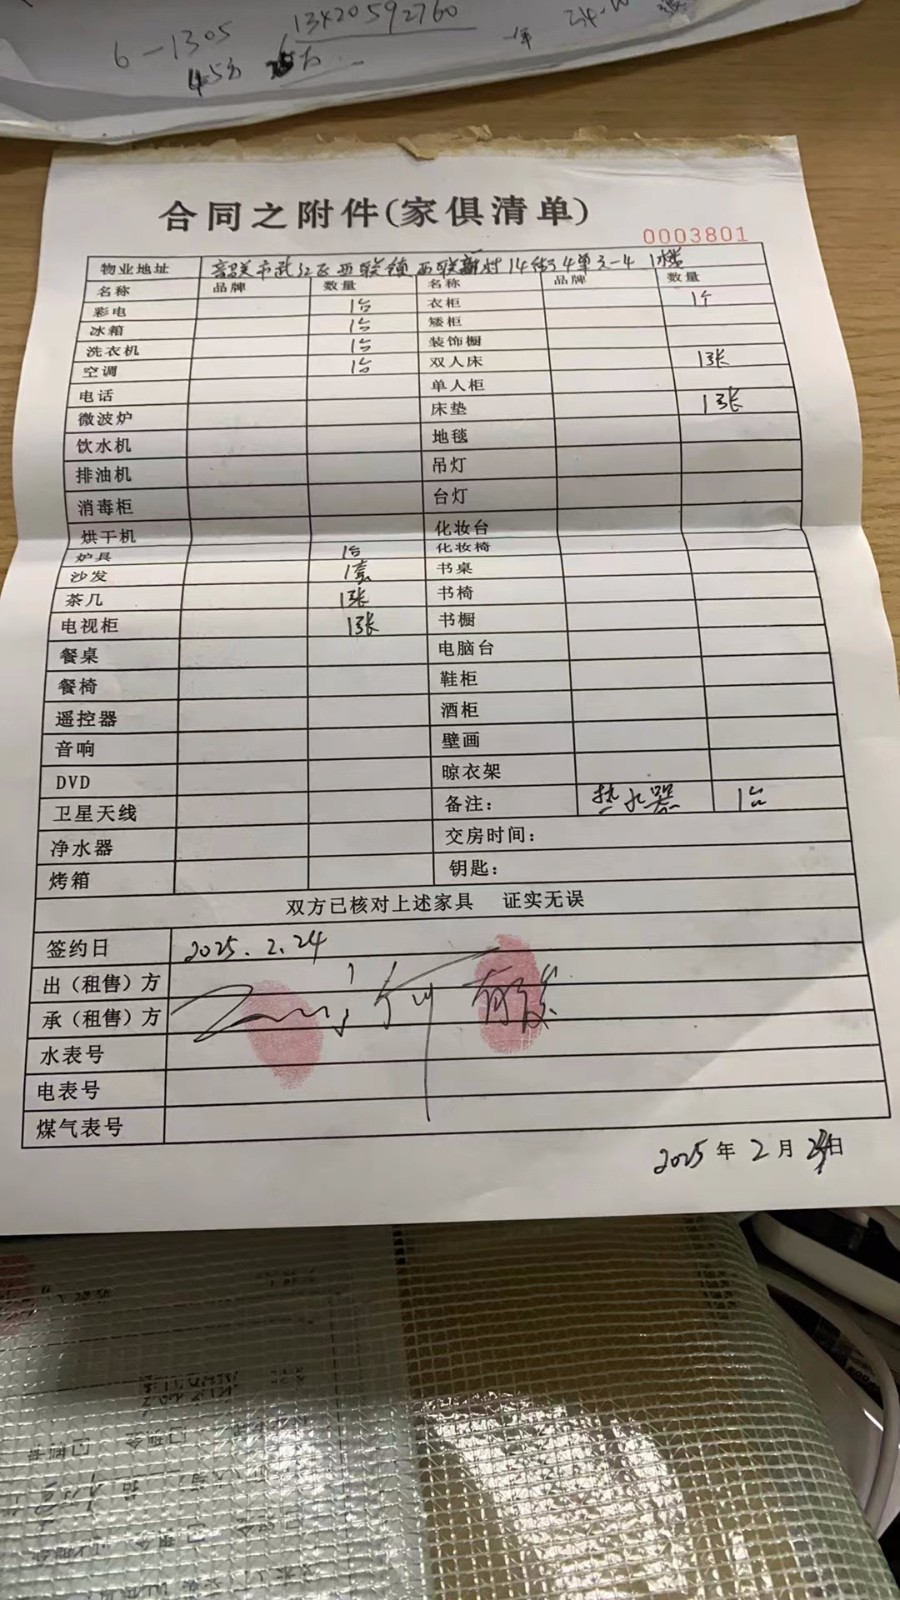 6-1305 13420592760
45方
合同之附件(家俱清单)
0003801
物业地址 市武江区西联镇西联新村14街34单元-4 1楼
名称 品牌 数量 名称 品牌 数量
彩电 1台 衣柜 1个
冰箱 1台 矮柜
洗衣机 1台 装饰橱
空调 1台 双人床 1张
电话 单人柜
微波炉 床垫 1张
饮水机 地毯
排油机 吊灯
消毒柜 台灯
烘干机 化妆台
炉具 1台 化妆椅
沙发 1套 书桌
茶几 1张 书椅
电视柜 1张 书橱
餐桌 电脑台
餐椅 鞋柜
遥控器 酒柜
音响 壁画
DVD 晾衣架
卫星天线 备注: 热水器 1台
净水器 交房时间:
烤箱 钥匙:
双方已核对上述家具 证实无误
签约日 2025.2.24
出(租售)方
承(租售)方
水表号
电表号
煤气表号
2025年2月24日